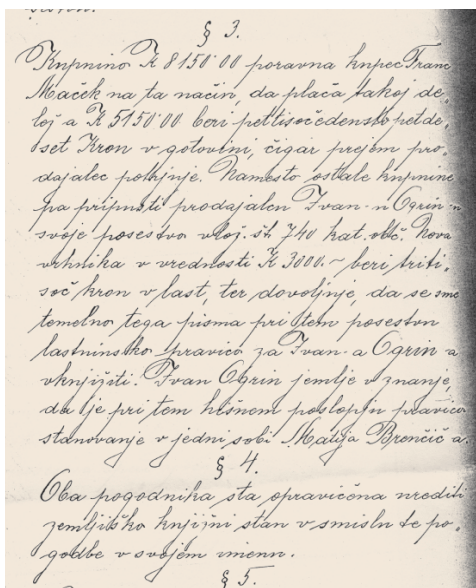 § 3.
Kupnino K 8150·00 poravna kupec Franc
Maček na ta način, da plača takoj de-
loj a K 5150·00 beri pettisočedenstopetde-
set Kron v gotovini, čigar prejem pro-
dajalec potrjuje. Namesto ostale kupnine
pa pripusti prodajalen Ivan-u Ogrin-u
svoje posestvo vlož. št 740 kat. obč. Nova
vrhnika v vrednosti K 3000.~ beri triti-
soč kron v last, ter dovoljuje, da se sme
temeljno tega pisma pri tem posestvu
lastninsko pravico za Ivan-a Ogrin-a
vknjižiti. Ivan Ogrin jemlje v znanje,
da je pri tem hišnem poslopju pravica
stanovanje v jedni sobi Matija Brenčič a.
§ 4.
Oba pogodnika sta opravičena urediti
zemljiško knjižni stan v smislu te po-
godbe v svojem imenu.
§ 5.